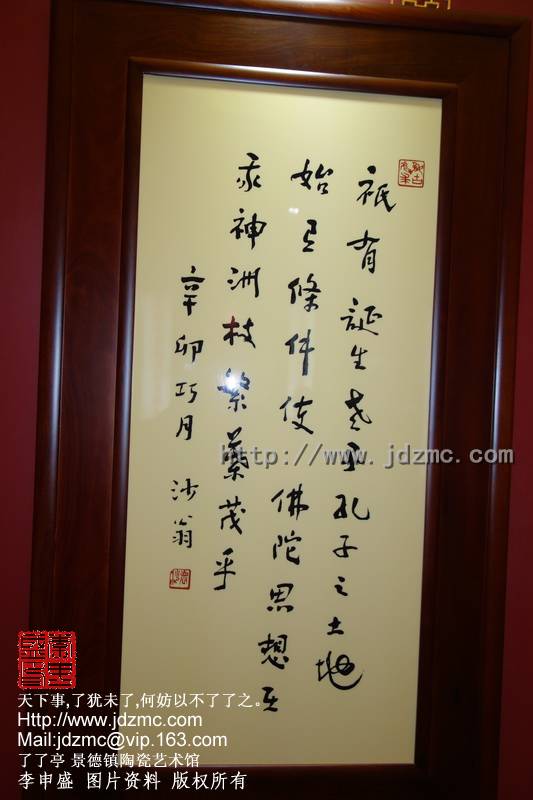 祇有誕生老子孔子之土地
始有條件使佛陀思想在
神洲枝繁葉茂乎
辛卯巧月 沙翁
http://www.jdzmc.com
天下事,了犹未了,何妨以不了了之。
Http://www.jdzmc.com
Mail:jdzmc@vip.163.com
了了亭 景德镇陶瓷艺术馆
李申盛 图片资料 版权所有